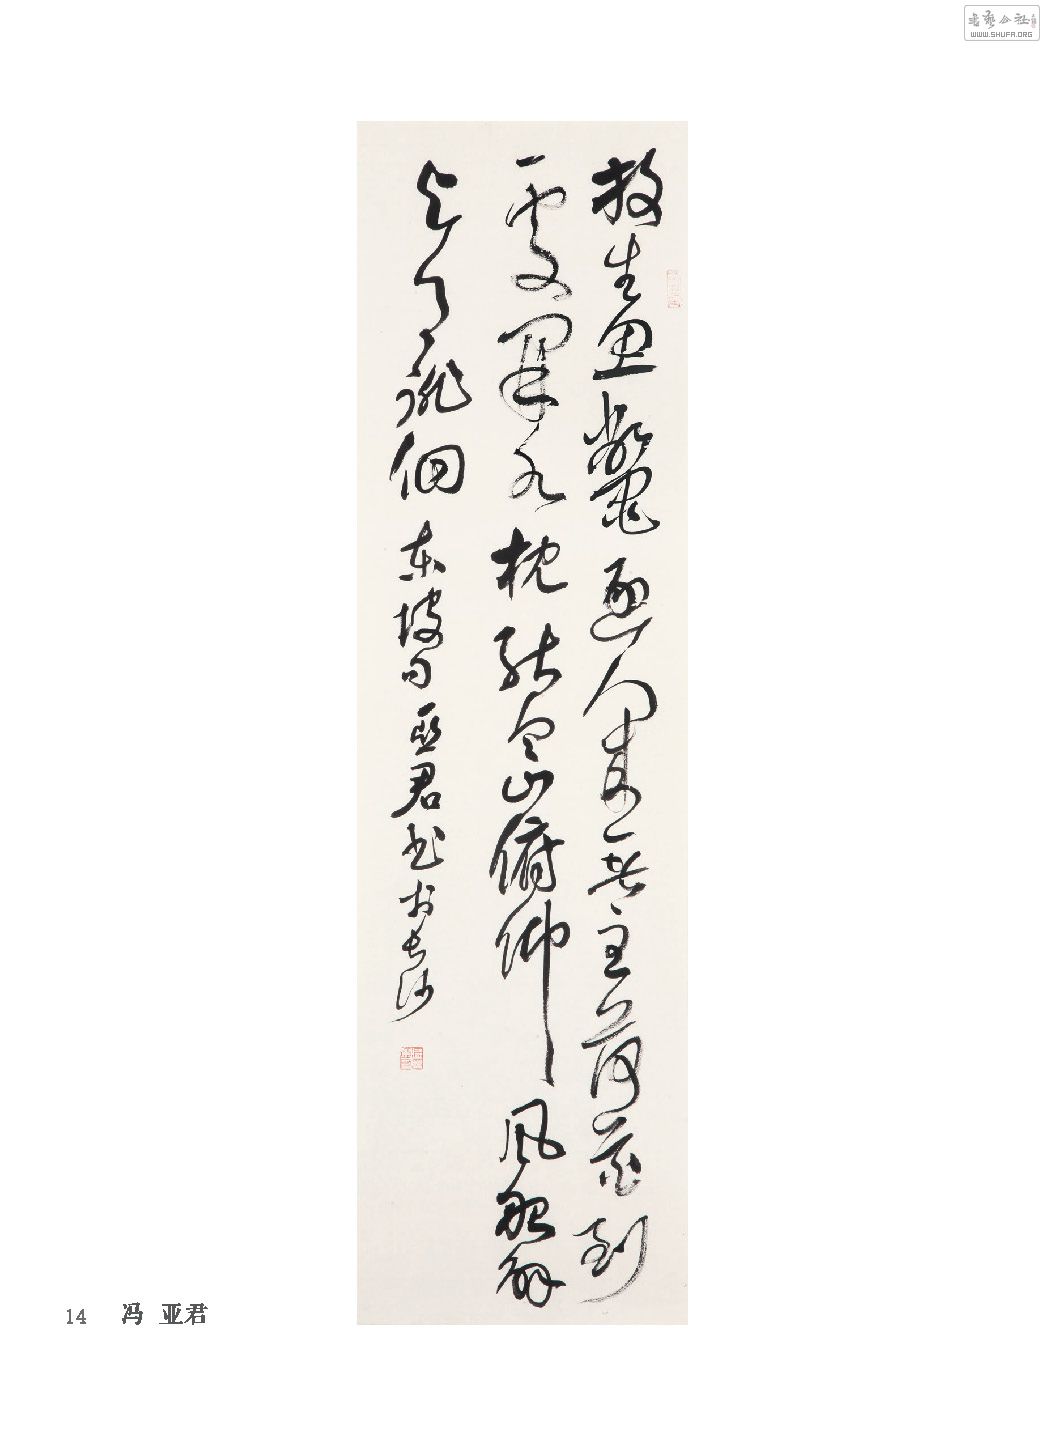 放生鱼鳖逐人来无主荷花到
处开水枕能令山俯仰风船解
与月徘徊 东坡句 亚君书于长沙
14 冯 亚君
书艺公社
WWW.SHUFA.ORG